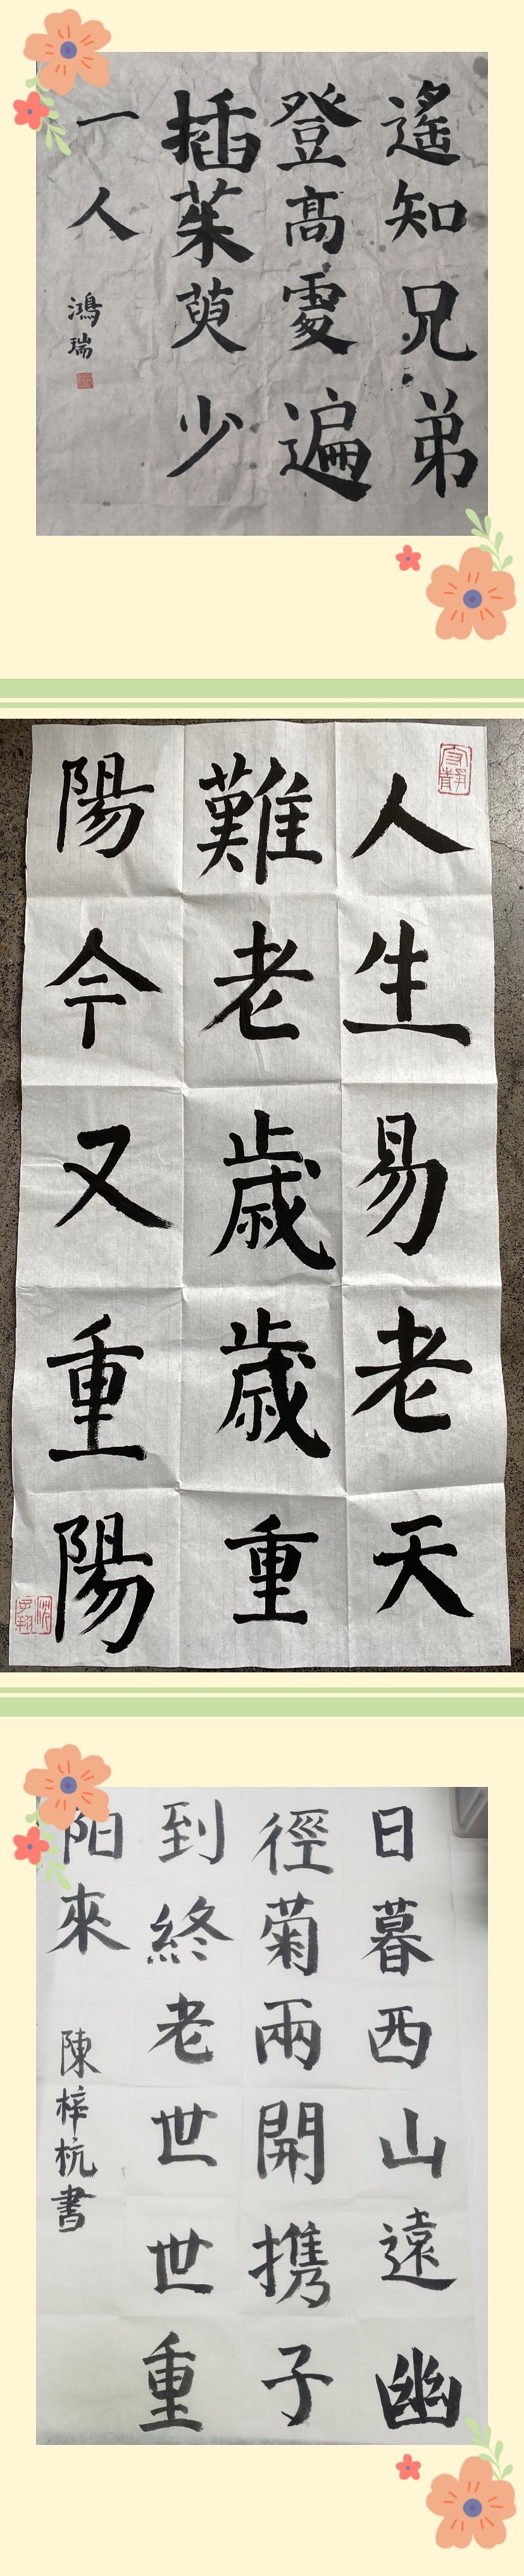 遙知兄弟
登高處遍
插茱萸少
一人
鴻瑞
人生易老天
難老歲歲重
陽今又重陽
日暮西山遠幽
徑菊兩開携子
到終老世世重
陽來
陳梓杭書